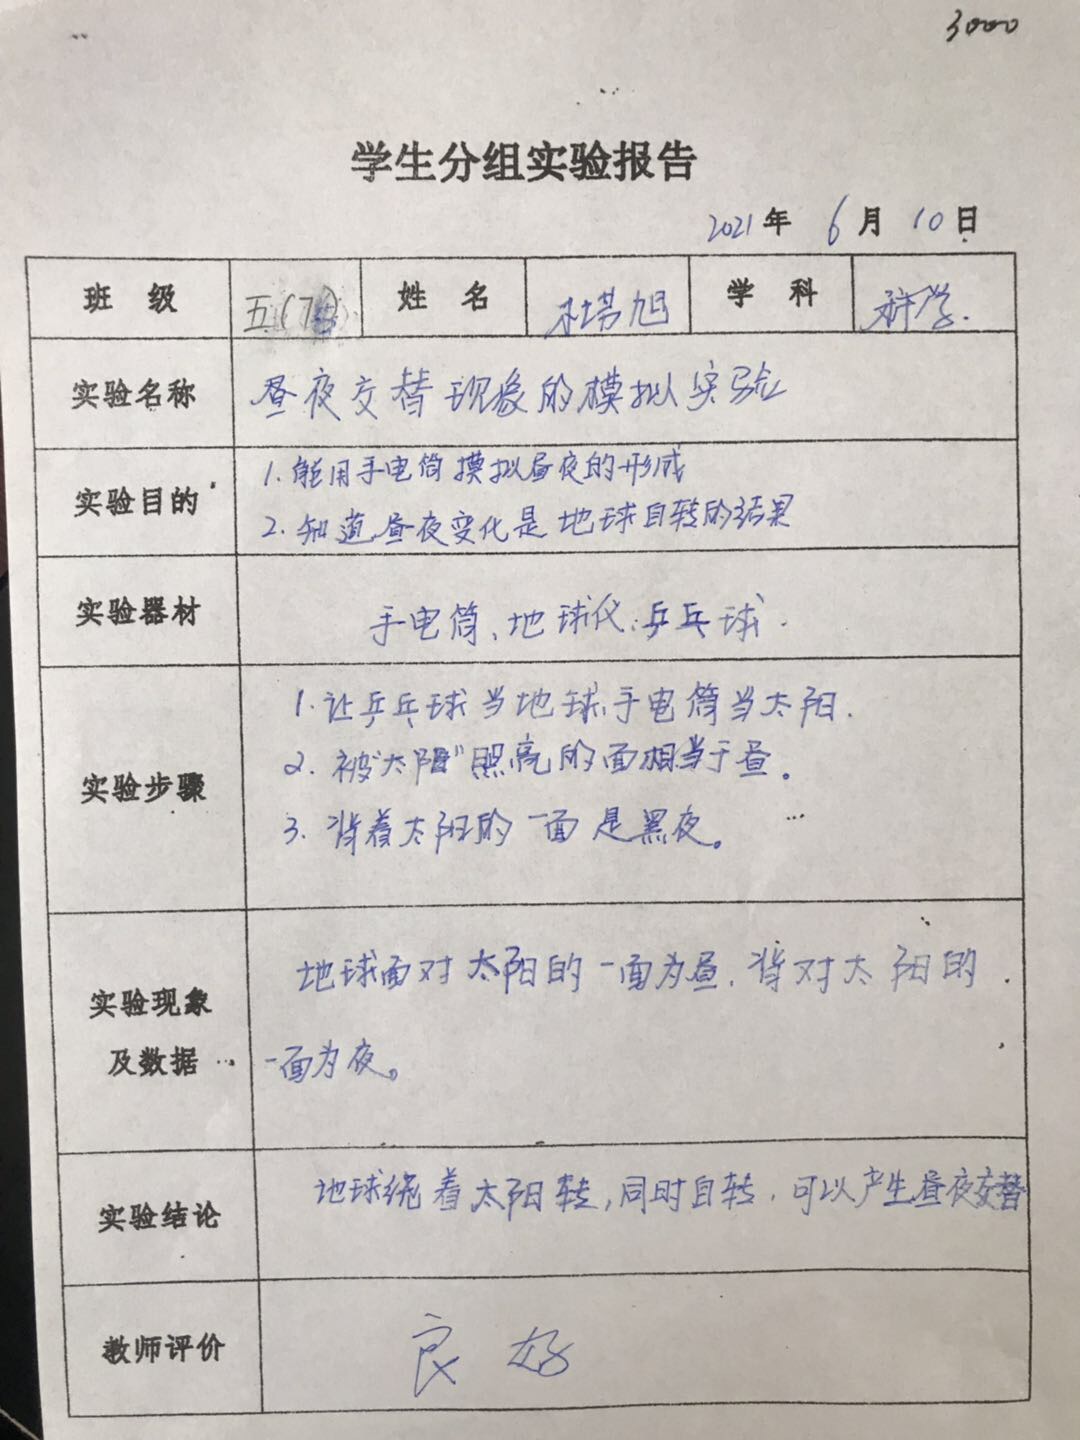 3000
学生分组实验报告
2021年 6月 10日
班 级 五(7 姓 名 旭 学 科 科学.
实验名称 昼夜交替现象的模拟实验
实验目的 1.能用手电筒摸拟昼夜的形成
2.知道昼夜变化是地球自转的结果
实验器材 手电筒、地球仪、乒乓球.
实验步骤 1.让乒乓球当地球,手电筒当太阳.
2.被"太阳"照亮的面相当于昼。
3.背着太阳的一面是黑夜。
实验现象 地球面对太阳的一面为昼.背对太阳的
及数据 一面为夜。
实验结论 地球绕着太阳转,同时自转.可以产生昼夜交替
教师评价 良好